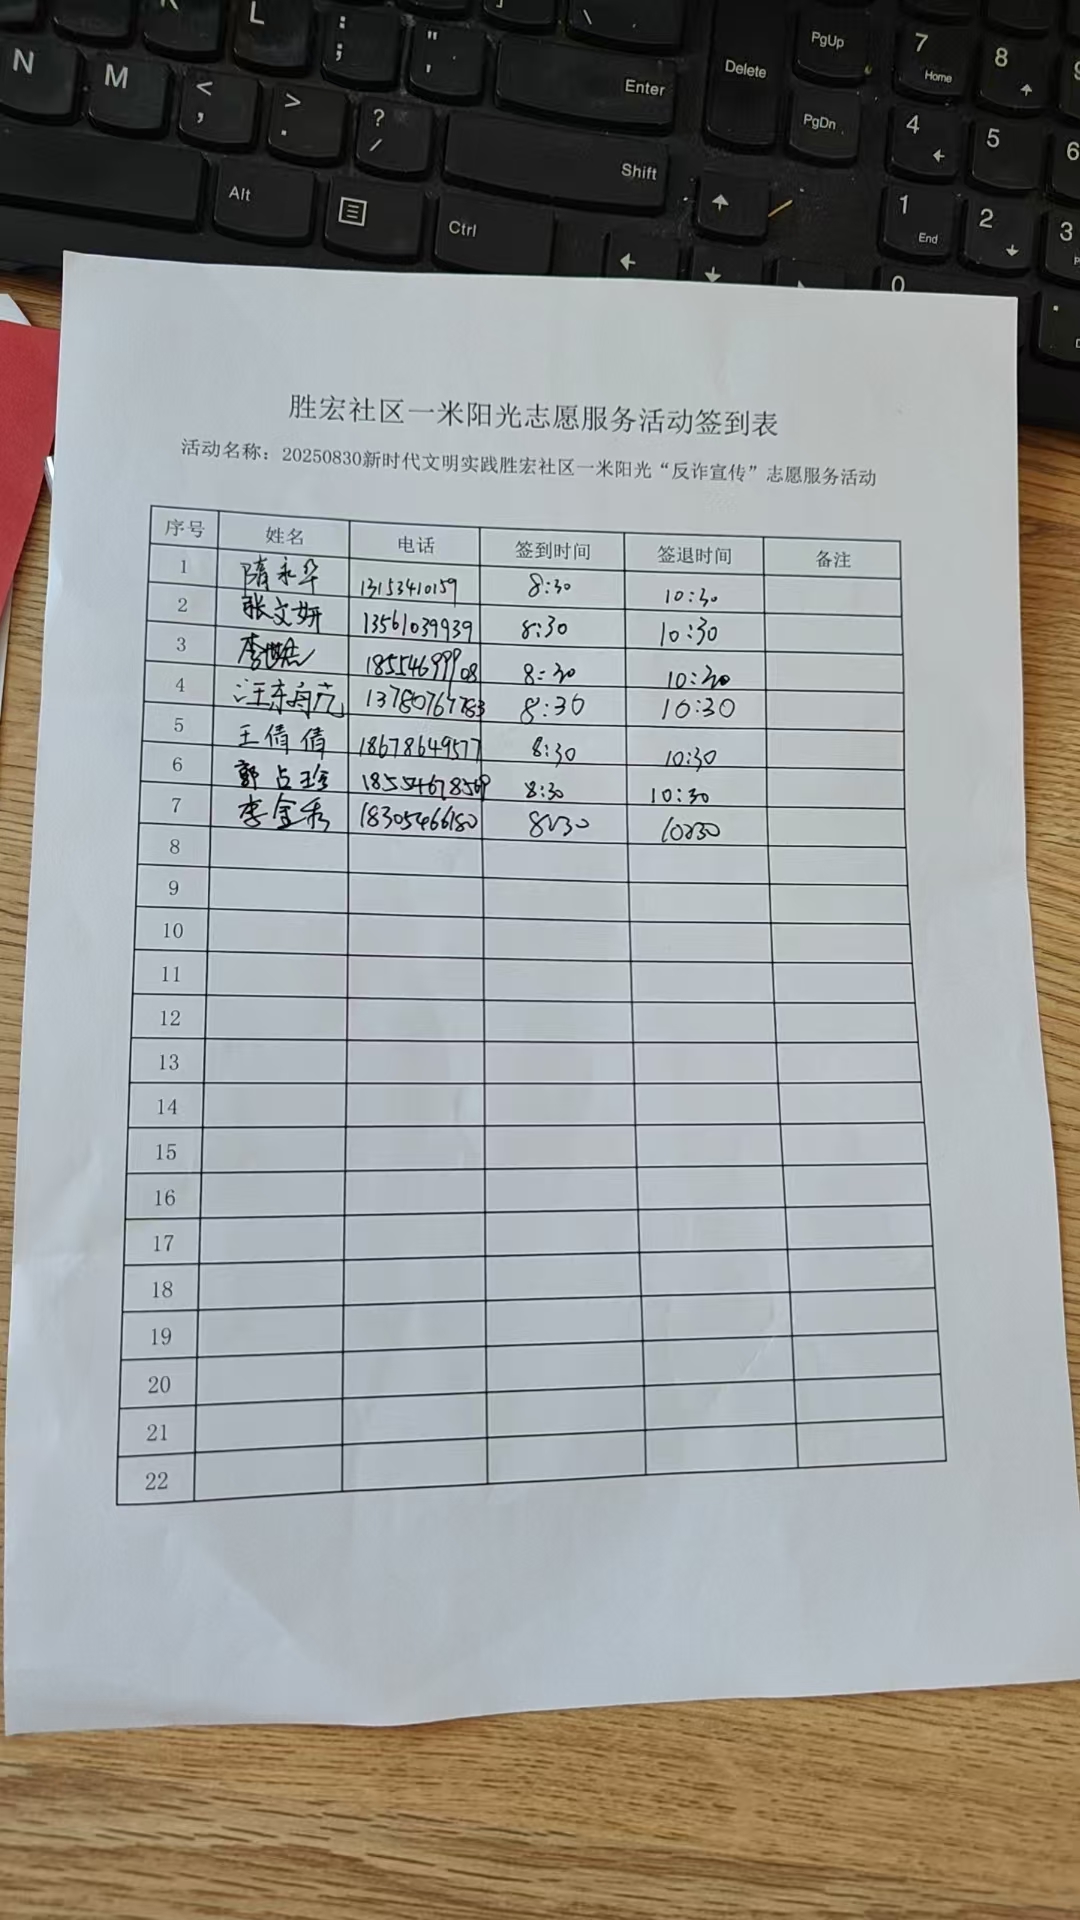 K L : ; " ' ] \ Delete PgUp 7 Home 8 9
N M < , > . ? / Enter PgDn 4 5 6
Alt Ctrl Shift 1 End 2 3
0 .
胜宏社区一米阳光志愿服务活动签到表
活动名称：20250830新时代文明实践胜宏社区一米阳光“反诈宣传”志愿服务活动
序号 姓名 电话 签到时间 签退时间 备注
1 隋永华 13153410159 8:30 10:30
2 张文妍 13561039939 8:30 10:30
3 18554699908 8:30 10:30
4 8:30 10:30
5 王倩倩 18678649577 8:30 10:30
6 郭占珍 18554678569 8:30 10:30
7 李金秀 18305466180 8:30 10:30
8
9
10
11
12
13
14
15
16
17
18
19
20
21
22